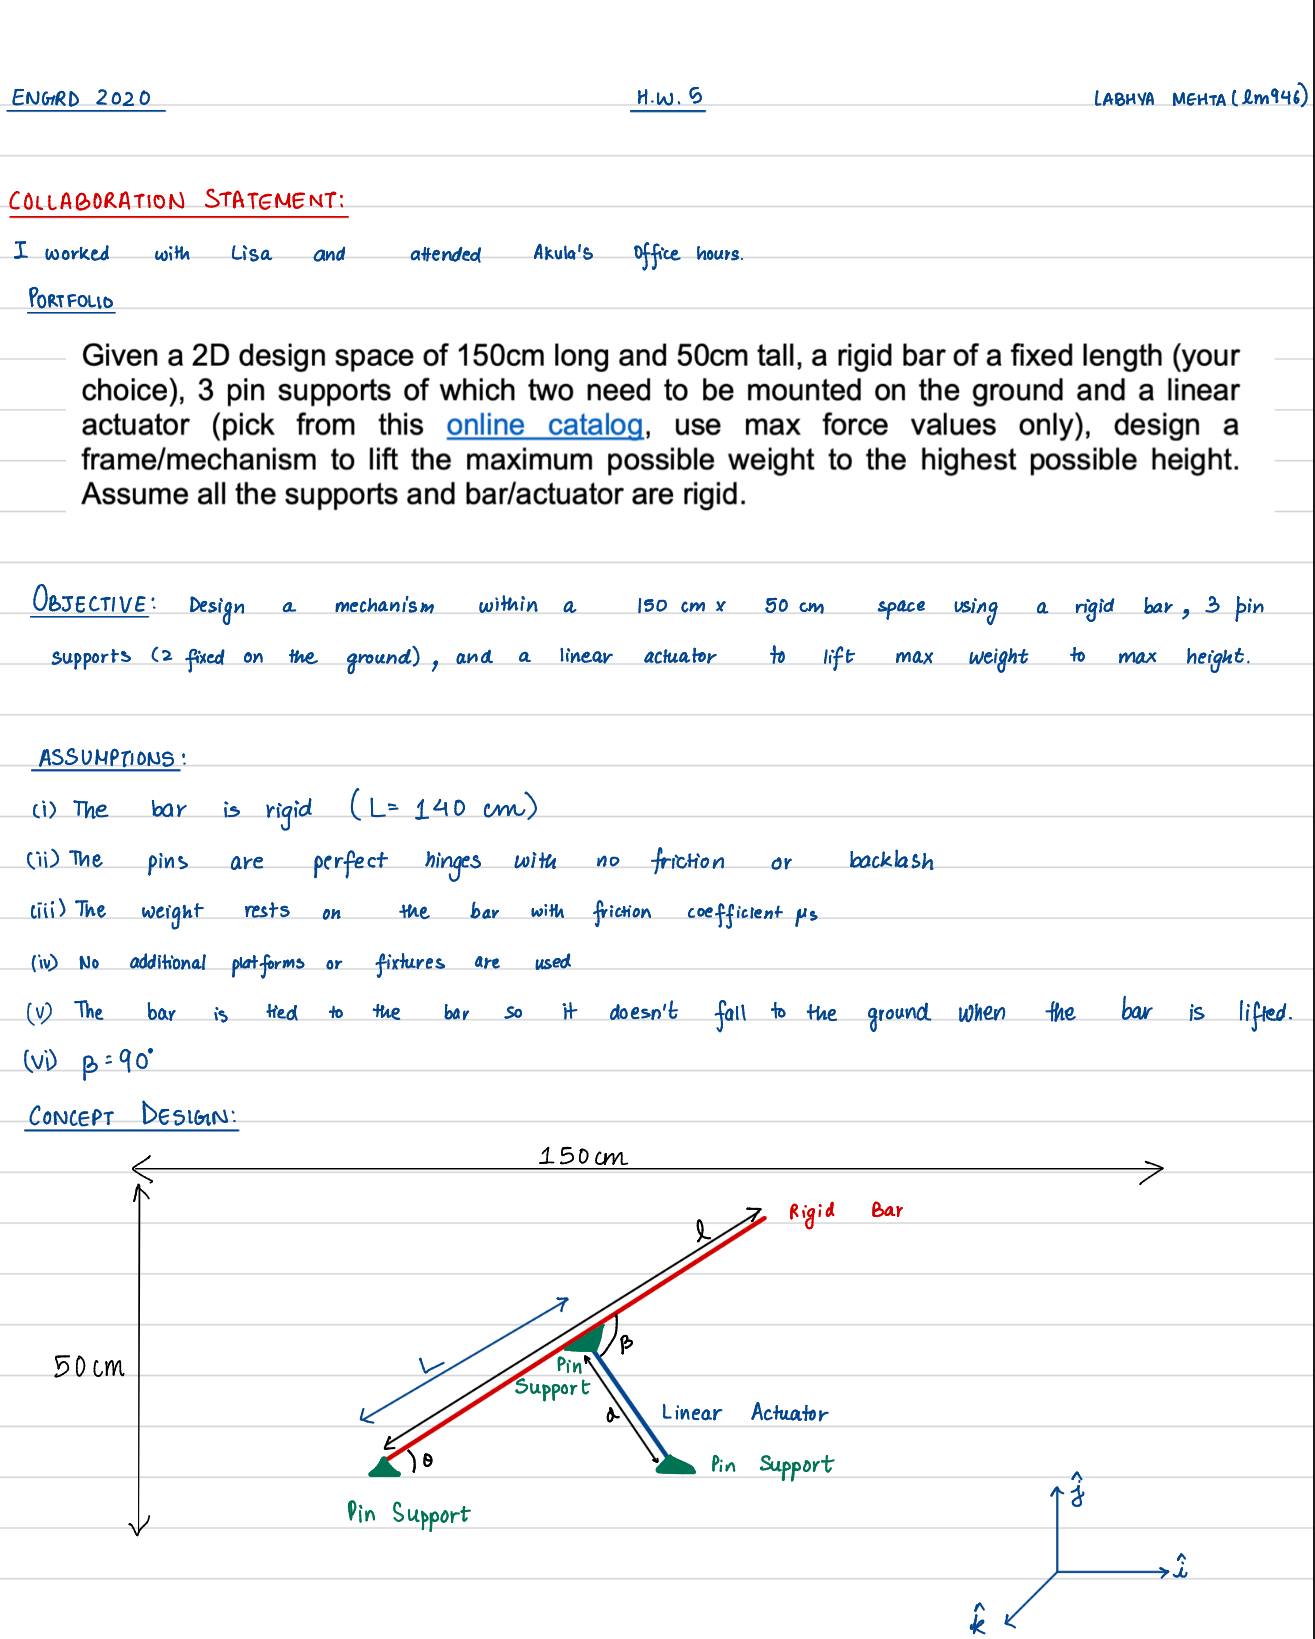 ENGRD 2020 H.W. 5 LABHYA MEHTA (lm946)
COLLABORATION STATEMENT:
I worked with Lisa and attended Akula's Office hours.
PORTFOLIO
Given a 2D design space of 150cm long and 50cm tall, a rigid bar of a fixed length (your
choice), 3 pin supports of which two need to be mounted on the ground and a linear
actuator (pick from this online catalog, use max force values only), design a
frame/mechanism to lift the maximum possible weight to the highest possible height.
Assume all the supports and bar/actuator are rigid.
OBJECTIVE: Design a mechanism within a 150 cm x 50 cm space using a rigid bar, 3 pin
supports (2 fixed on the ground), and a linear actuator to lift max weight to max height.
ASSUMPTIONS:
(i) The bar is rigid (L= 140 cm)
(ii) The pins are perfect hinges with no friction or backlash
(iii) The weight rests on the bar with friction coefficient μs
(iv) No additional platforms or fixtures are used
(v) The bar is tied to the bar so it doesn't fall to the ground when the bar is lifted.
(vi) β=90°
CONCEPT DESIGN:
150cm
Rigid Bar
l
L
β
50cm
Pin
Support
d
Linear Actuator
θ
Pin Support
Pin Support
ĵ
î
k̂